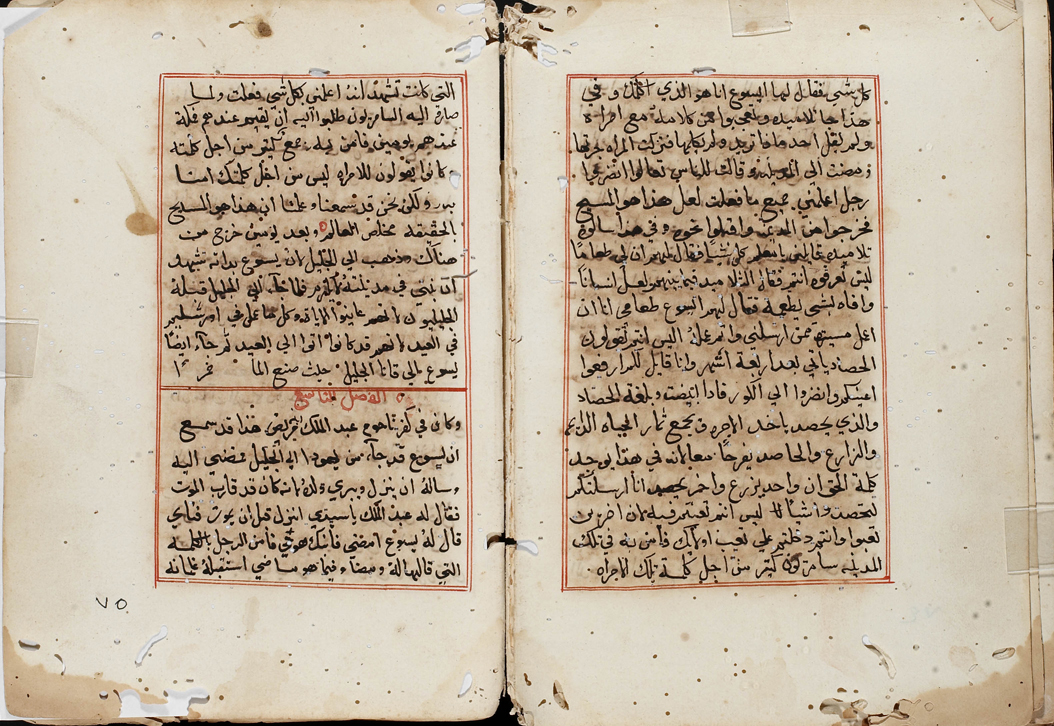 كل شي فقال لها ايسوع انا هو الذي اكلمك وفي
هذا جا تلاميده وتعجبوا من كلامه مع امراه
ولم يقل احد ماذا تريد ولم تكلمها فتركت المراه جرتها
ومضت الى المدينه وقالت للناس تعالوا انضروا
رجل اعلمني جميع ما فعلت لعل هذا هو المسيح
فخرجوا من المدينه واقبلوا نحوه وفي هذا سالوه
تلاميده قايلين يا معلم كل شيا فقال لهم ان لي طعامًا
ليس تعرفوه انتم فقالة التلاميد فيما بينهم لعل انسانًا
وافاه بشي يطعمه فقال لهم ايسوع طعامي انا ان
اعمل مسية من ارسلني واتم عمله اليس انتم تقولون
الحصاد ياتي بعد اربعة اشهر وانا قايل لكم ارفعوا
اعينكم وانضروا الي الكور قد ابيضت وبلغة الحصاد
والذي يحصد ياخد الاجره ويجمع ثمار الحياه الدايمه
والزارع والحاصد يفرحًا معا لانه في هذا يوجد
كلمة الحق ان واحد يزرع واخر يحصد انا ارسلتكم
لتحصدوا شيًا ليس انتم تعبتم فيه لان اخرين
تعبوا وانتم دخلتم علي تعب اوليك فامن به في تلك
المدينه سامريون كثير من اجل كلمة تلك الامراه
التي كانت تشهد انه اعلمني بكل شي فعلت ولما
صارة اليه السامريون طلبوا اليه ان يقيم عندهم فمكة
عندهم يومين فامن به جمع كثير من اجل كلمته
وكانوا يقولون للامراه ليس من اجل كلمتك امنا
به ولكن نحن قد سمعنا وعلمنا ان هذا هو المسيح
بالحقيقه مخلص العالم وبعد يومين خرج من
هناك وذهب الي الجليل لان يسوع بدانه شهد
ان نبي في مدينته لا يكرم فلما جا الي الجليل قبله
الجليليون لانهم عاينوا الايات وكل ما عمل في اورشليم
في العيد لانهم قد كانوا اتوا الي العيد ثم جآء ايضًا
يسوع الي قانا الجليل حيث صنع الما خمرًا
الفصل التاسع
وكان في كفرناحوم عبد الملك ابنه مريض هذا قد سمع
ان يسوع قد جآء من يهودا الي الجليل فمضي اليه
وساله ان ينزل ويبري ولده لانه كان قد قارب الموت
فقال له عبد الملك يا سيدي انزل قبل ان يموت فتاي
قال له يسوع امضي فابنك حي فامن الرجل بالكلمه
التي قالها له ومضاء وفيما هو ماضي استقبله غلمانه
٧٥